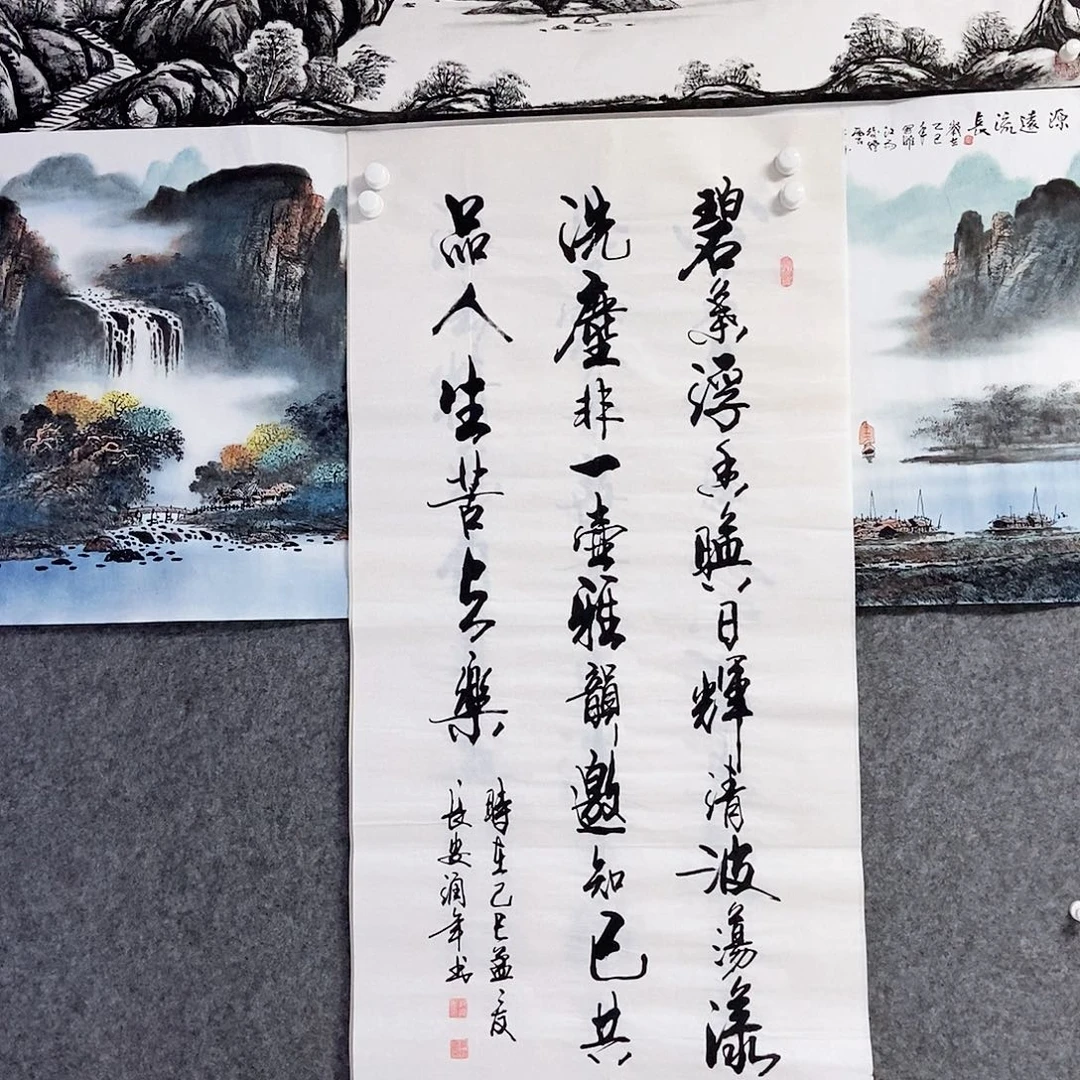 源遠流長
碧葉浮香暎日輝清波蕩漾
洗塵非一壺雅韻邀知己共
品人生苦与樂
時在乙巳孟夏
長安潤年书